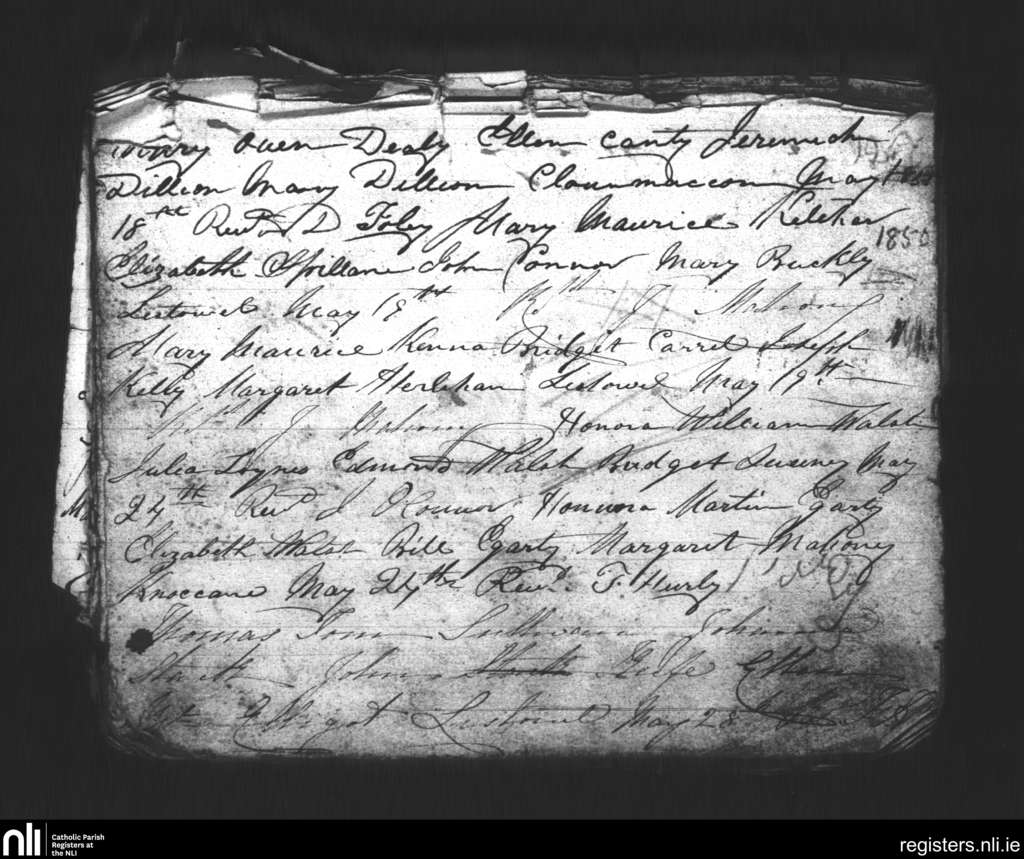 Owen Dealy Ellen Canty Jeremiah
Dillion Mary Dillion Clounmaccon May
18th Revd D Foley Mary Maurice Keleher
1850
Elizabeth Spillane John Connor Mary Buckly
Listowel May 18th J Mahony
Mary Maurice Kenna Bridget Carrel Joseph
Kelly Margaret Herlehan Listowel May 19th
J Mahony Honora William Walsh
Julia Edmond Walsh Bridget May
24th Revd J OConnor Honnora Martin Egarty
Elizabeth Walsh Bill Egarty Margaret Mahoney
Knoccane May 24th Revd F. Hurly
Thomas Tom Sullivan Johanna
Stack John Stack
Listowel May 28
nli
Catholic Parish
Registers at
the NLI
registers.nli.ie